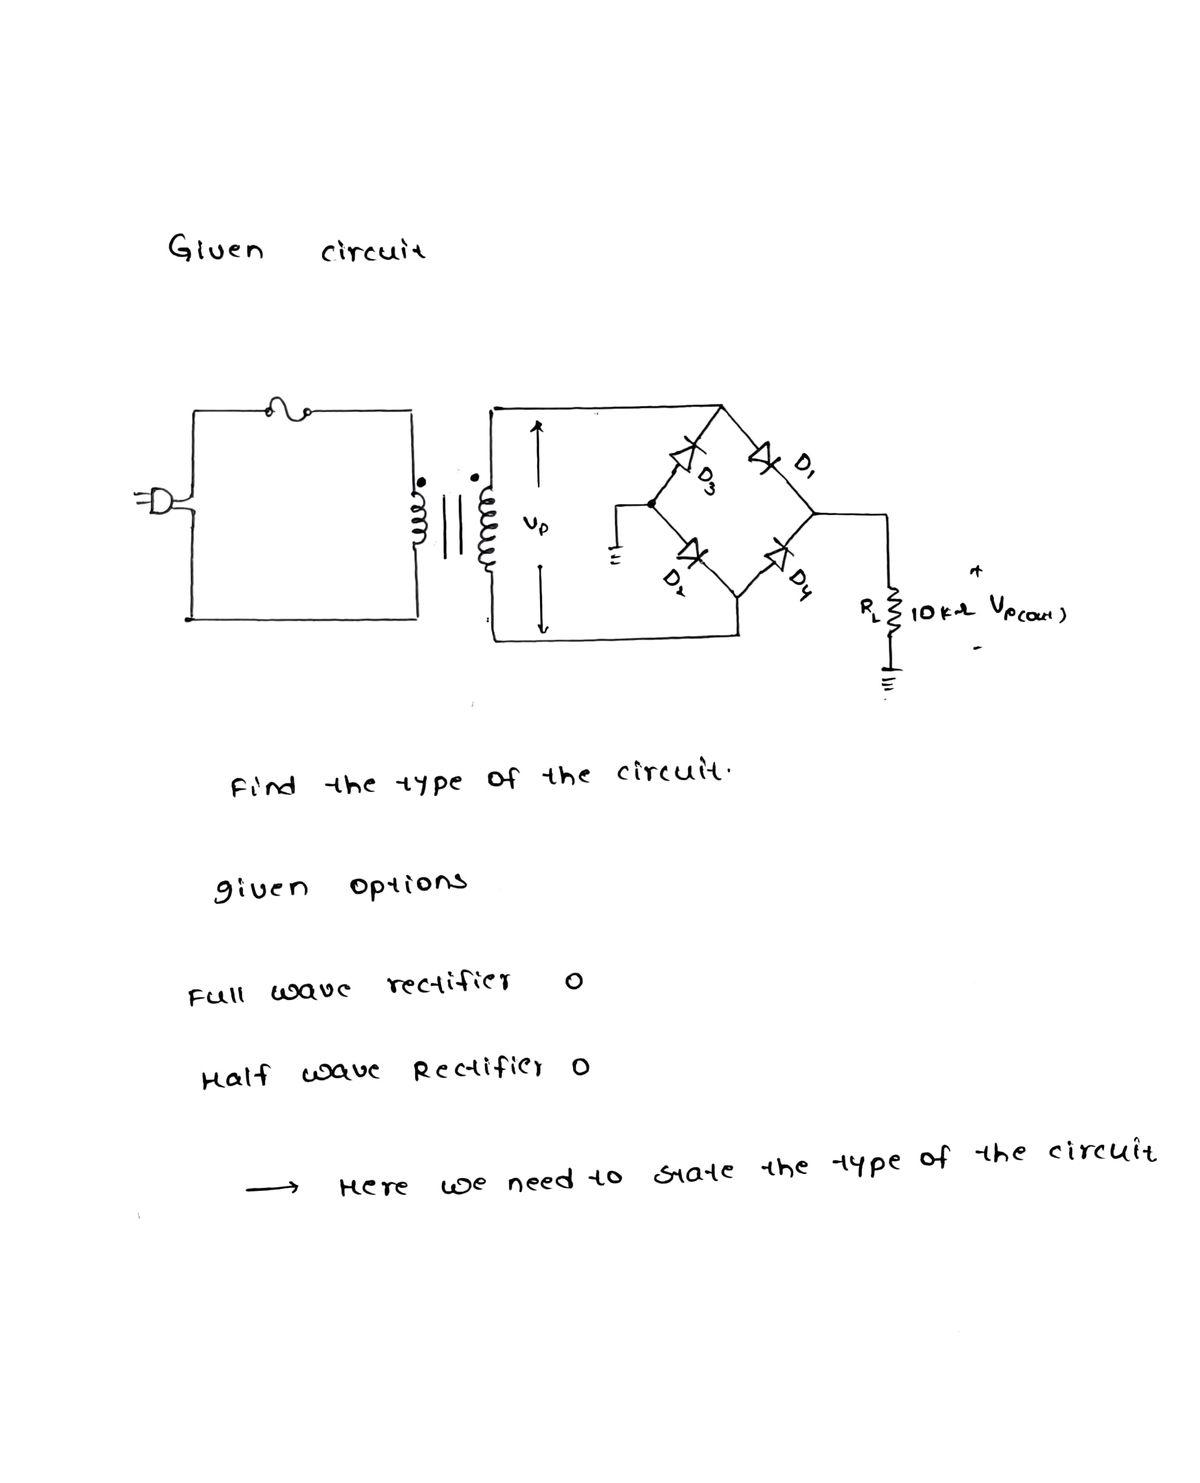 Given circuit
D1
D3
Vp
D2
D4
RL 10kΩ Vp(out)
+
-
Find the type of the circuit.
given options
Full wave rectifier o
Half wave Rectifier o
→ Here we need to state the type of the circuit